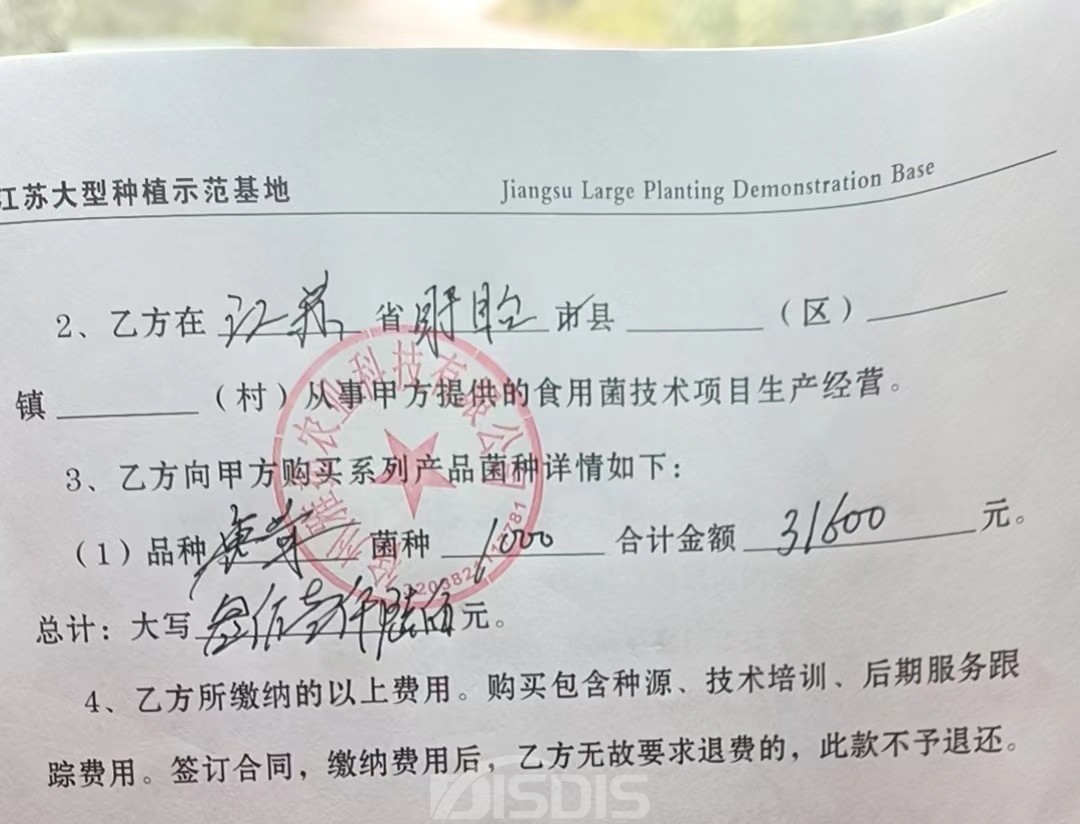 江苏大型种植示范基地 Jiangsu Large Planting Demonstration Base
2、乙方在 江苏 省 盱眙 市县 （区）
镇 （村）从事甲方提供的食用菌技术项目生产经营。
3、乙方向甲方购买系列产品菌种详情如下：
（1）品种 菌种 1000 合计金额 31600 元。
总计：大写 元。
4、乙方所缴纳的以上费用。购买包含种源、技术培训、后期服务跟
踪费用。签订合同，缴纳费用后，乙方无故要求退费的，此款不予退还。
农业科技有限公司
DISDIS